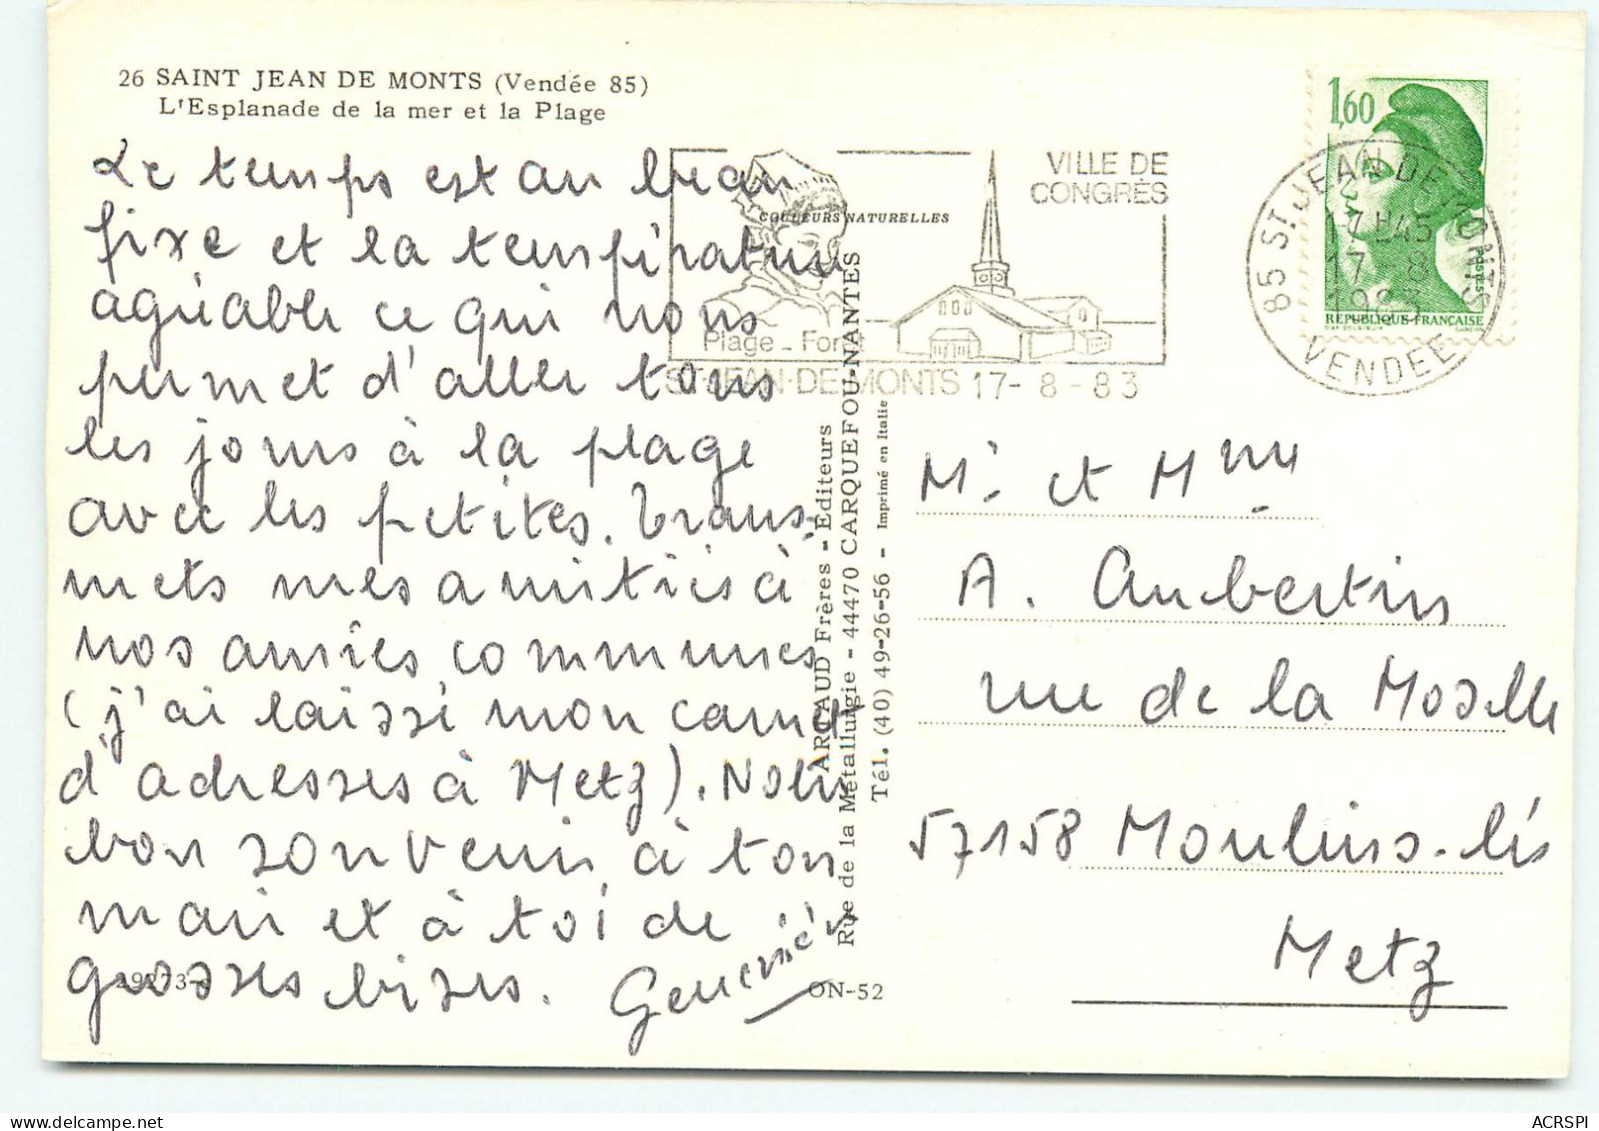 26 SAINT JEAN DE MONTS (Vendée 85)
L'Esplanade de la mer et la Plage
Le temps est au beau
fixe et la température
agréable ce qui nous
permet d'aller tous
les jours à la plage
avec les petites. Trans-
mets mes amitiés à
nos amies communes
(j'ai laissé mon carnet
d'adresses à Metz). Notre
bon souvenir à ton
mari et à toi de
grosses bises. Geneviève
COULEURS NATURELLES
VILLE DE
CONGRÈS
Plage - Forêt
ST-JEAN-DE-MONTS 17-8-83
1,60
POSTES
REPUBLIQUE-FRANÇAISE
85 ST JEAN DE MONTS
17 H45
17 - 8
1983
VENDEE
ARTAUD Frères - Editeurs
Rue de la Métallurgie - 44470 CARQUEFOU-NANTES
Tél. (40) 49-26-56 - Imprimé en Italie
Mr. et Mme
A. Aubertin
rue de la Moselle
57158 Moulins-lès
Metz
ON-52
ACRSPI